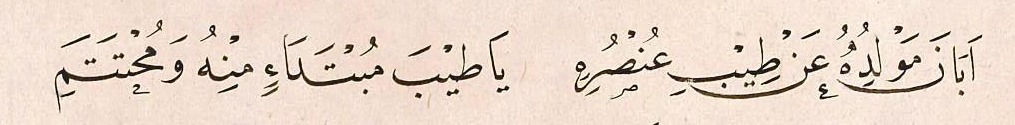 اَبَانَ مَوْلِدُهُ عَنْ طِيْبِ عُنْصُرِهِ يَا طِيْبَ مُبْتَدَاءٍ مِنْهُ وَ مُخْتَتَمِ